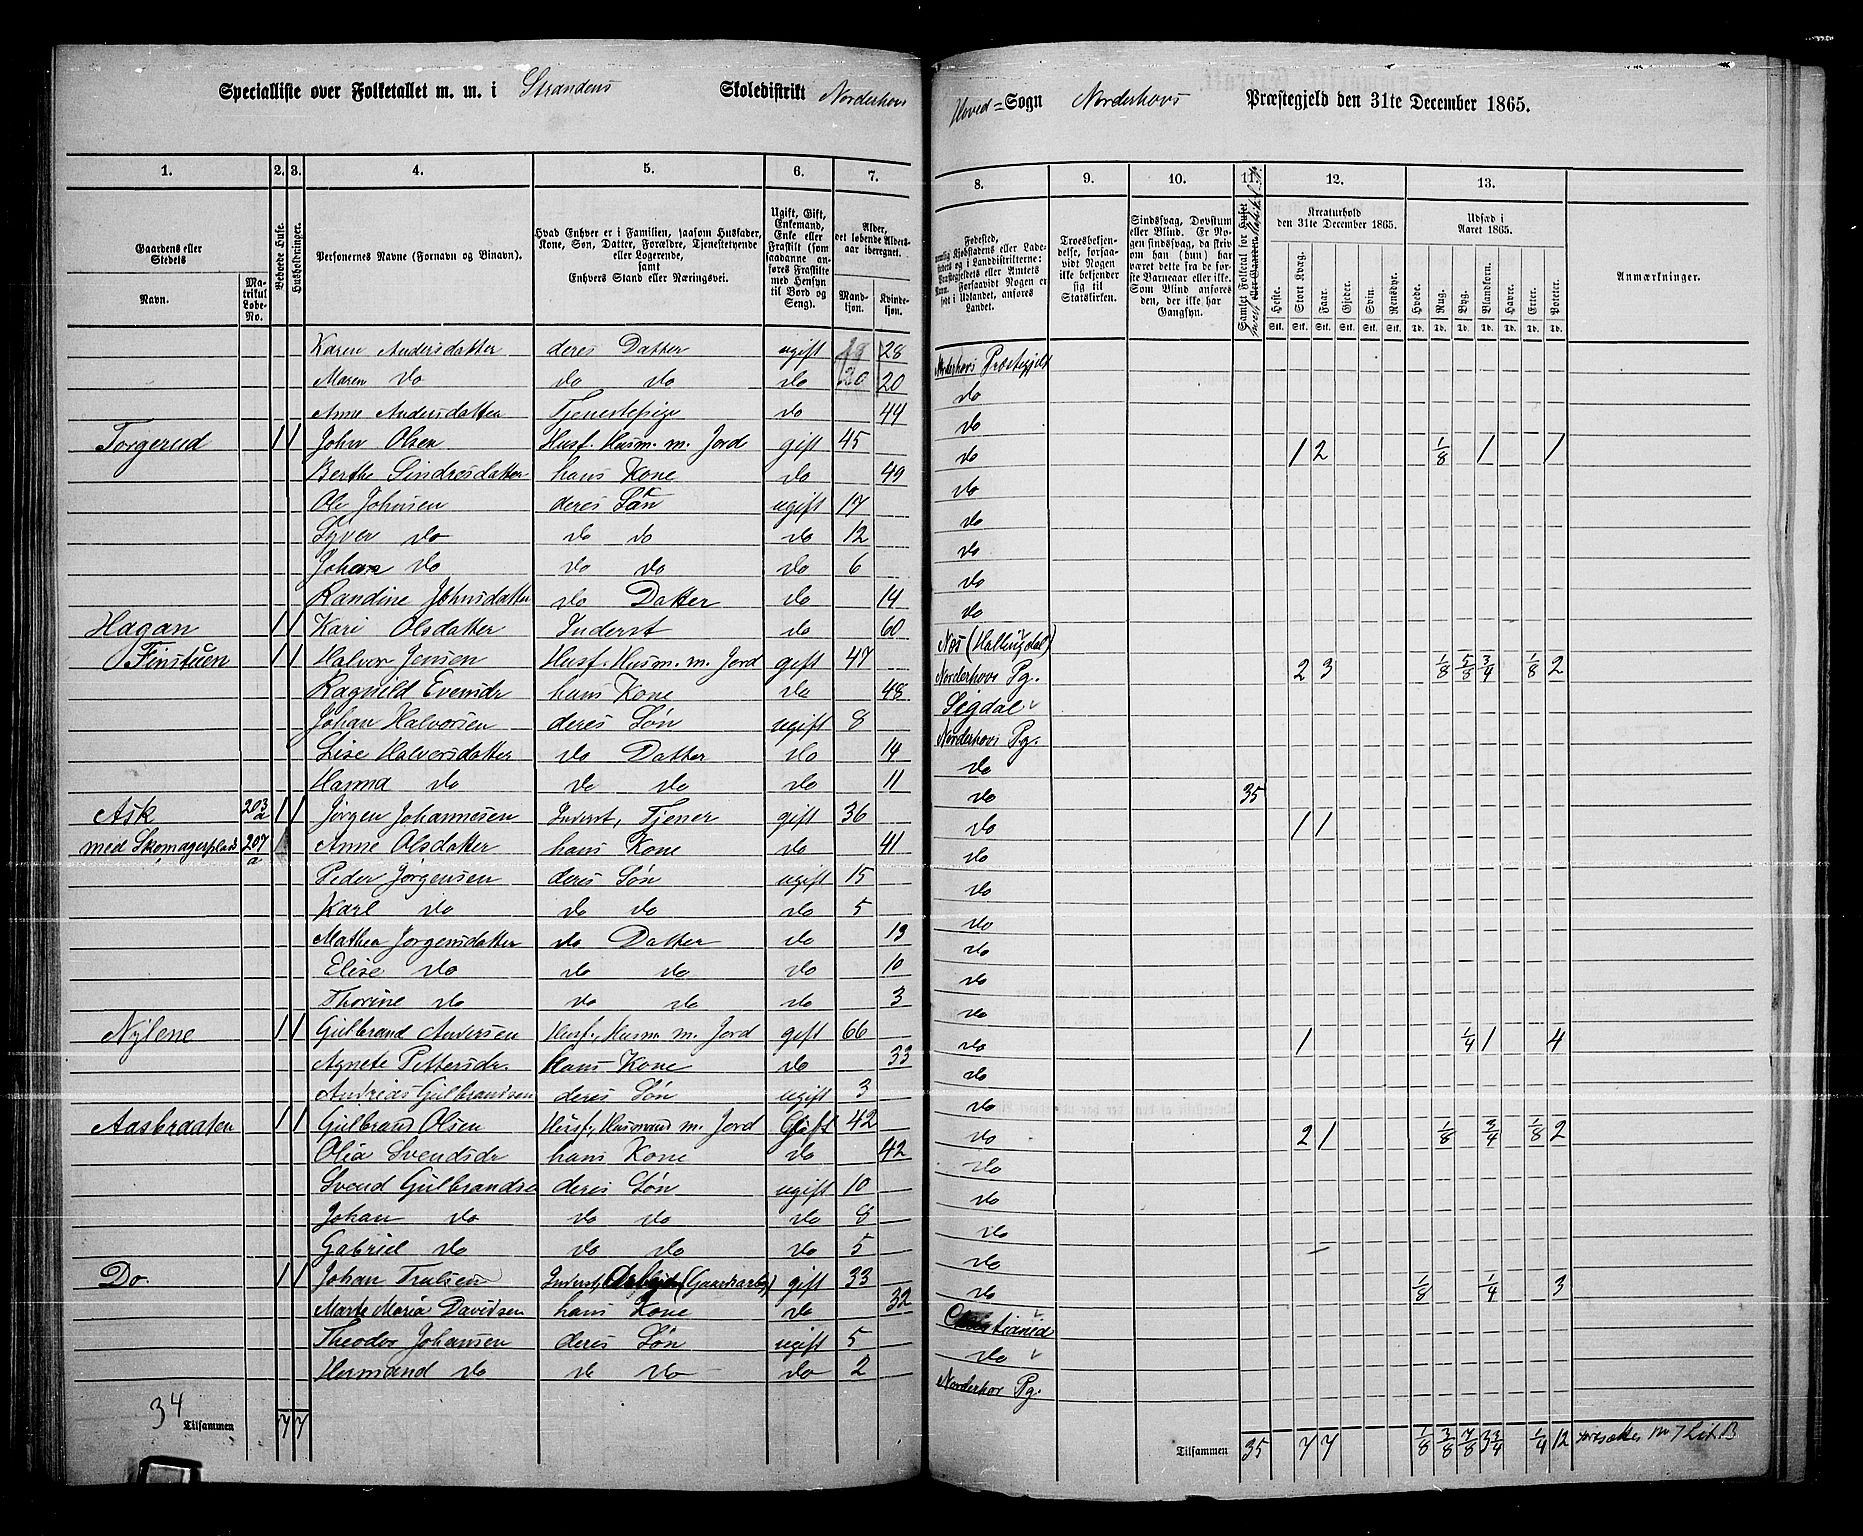 Specialliste over Folketallet m. m. i Strandens Skoledistrikt Norderhovs Hoved=Sogn Norderhovs Præstegjeld den 31te December 1865.
1. 2. 3. 4. 5. 6. 7. 8. 9. 10. 11. 12. 13.
Gaardens eller Stedets
Navn.
Matrikul Løbe-No.
Beboede Huse.
Husholdninger.
Personernes Navne (Fornavn og Binavn).
Hvad Enhver er i Familien, saasom Husfader, Kone, Søn, Datter, Forældre, Tjenestetyende eller Logerende, samt Enhvers Stand eller Næringsvei.
Ugift, Gift, Enkemand, Enke eller Fraskilt (som saadanne anføres Fraskilte med Hensyn til Bord og Seng).
Alder, det løbende Aldersaar iberegnet.
Mandkjøn. Kvindekjøn.
Fødested,
Troesbekjendelse, forsaavidt Nogen ikke bekjender sig til Statskirken.
Sindssvag, Døvstum eller Blind. Er Nogen sindssvag, da skriv om han (hun) har været dette fra de første Barneaar eller ikke. Som Blind anføres den, der ikke har Gangsyn.
Samlet Folketal for Huset
Kreaturhold den 31te December 1865.
Heste. Stort Kvæg. Faar. Gjeder. Svin. Rensdyr.
Udsæd i Aaret 1865.
Hvede. Rug. Byg. Blandkorn. Havre. Erter. Poteter.
Stk. Stk. Stk. Stk. Stk. Stk. Td. Td. Td. Td. Td. Td. Td.
Anmærkninger.
Karen Andersdatter deres Datter ugift 28 28 Norderhovs Præstegjeld
Maren do do do do 20 20 do
Anne Andersdatter Tjenestepige do 44 do
Torgerud 1 1 John Olsen Husf. Husm. m. Jord gift 45 do 1 2 1/8 1 1
Berthe Sindresdatter hans Kone do 49 do
Ole Johnsen deres Søn ugift 17 do
Syver do do do do 12 do
Johan do do do do 6 do
Randine Johnsdatter do Datter do 14 do
Hagan 1 1 Kari Olsdatter Inderst do 60 Næs (Hallingdal)
Finstuen 1 1 Halvor Jensen Husf. Husm. m. Jord gift 47 Norderhovs Pg. 2 3 1/8 5/8 3/4 1/8 2
Ragnild Evensdr hans Kone do 48 Sigdal
Johan Halvorsen deres Søn ugift 8 Norderhovs Pg.
Lise Halvorsdatter do Datter do 14 do
Hanna do do do do 11 do 35
Ask 203 a 1 1 Jørgen Johannesen Inderst, Tjener gift 36 do 1 1
med Skomagerplads 207 a Anne Olsdatter hans Kone do 41 do
Peder Jørgensen deres Søn ugift 15 do
Karl do do do do 5 do
Mathea Jørgensdatter do Datter do 13 do
Elise do do do do 10 do
Thorine do do do do 3 do
Nylene 1 1 Gulbrand Andersen Husf., Husm m. Jord gift 66 do 1 1/4 1 4
Agnete Pettersdr. hans Kone do 33 do
Andreas Gulbrandsen deres Søn ugift 3 do
Aasbraaten 1 1 Gulbrand Olsen Husf., Husmand m. Jord Gift 42 do 2 1 1/8 3/4 1/8 2
Olia Svendsdr hans Kone do 42 do
Svend Gulbrandsen deres Søn ugift 10 do
Johan do do do do 8 do
Gabriel do do do do 5 do
Do. 1 1 Johan Trulsen Inderst, (Gaardsarb.) gift 33 do 1/8 1/4 3
Marte Maria Davidsen hans Kone do 32 Christiania
Theodor Johansen deres Søn ugift 5 do
Hermand do do do do 2 Norderhov Pg.
34 Tilsammen 7 7 Tilsammen 35 7 7 1/8 3/8 7/8 3 3/4 1/4 12 fortsættes No 7 Lit. B